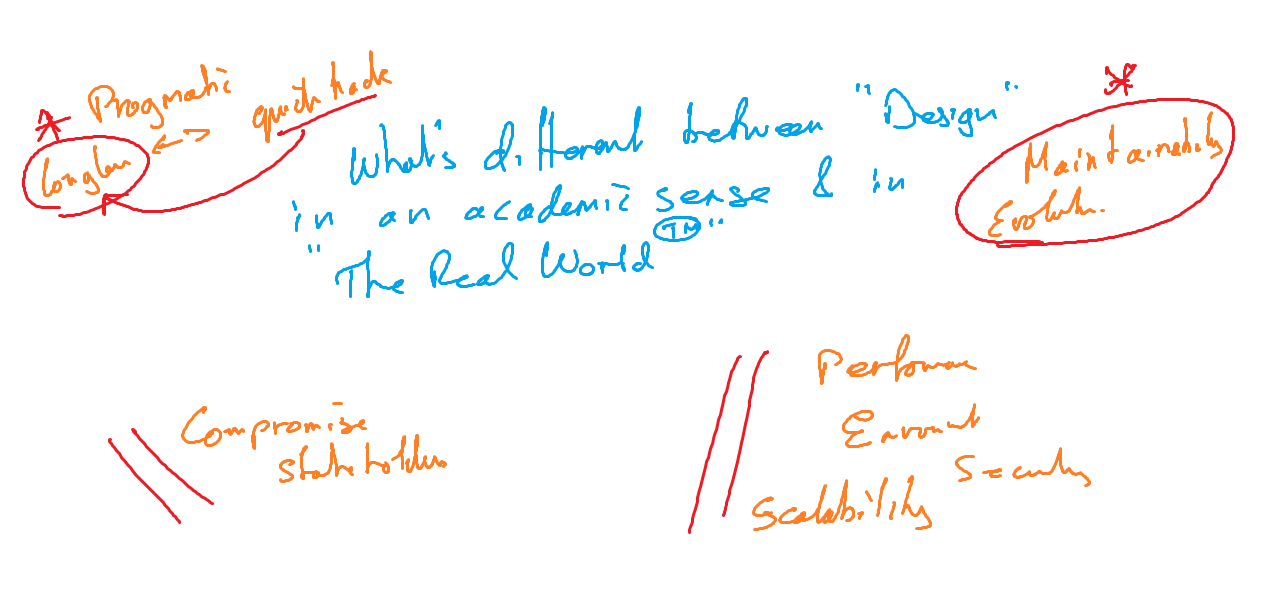 Pragmatic
quick hack
longterm
What's different between "Design"
in an academic sense & in
"The Real World TM"
Maintainability
Evolution.
Compromise
stakeholders
Performance
Environment
Security
Scalability